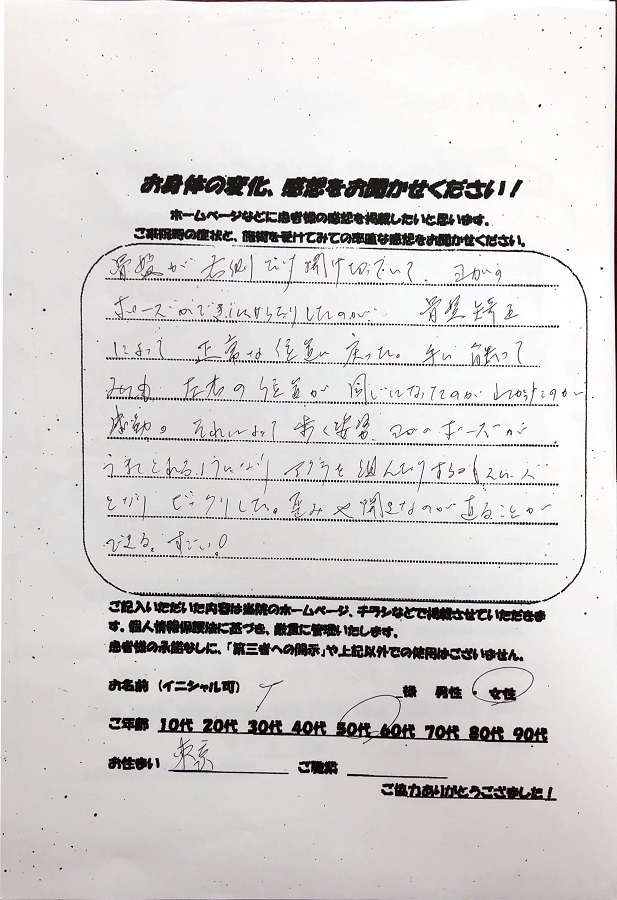 お身体の変化、感想をお聞かせください!
ホームページなどに患者様の感想を掲載したいと思います。
ご来院時の症状と、施術を受けてみての率直な感想をお聞かせください。
骨盤が右側だけ開け切っていて、ヨガの
ポーズができにくかったりしたのが 骨盤矯正
によって正常な位置に戻った。手で触って
みても左右の位置が同じになってのがわかったのが
感動。それによって歩く姿勢、ヨガのポーズが
うまくとれるようになり アグラを組んだりするのもスムーズ
となり ビックリした。歪みや開きなのが直ることが
できる。すごい!
ご記入いただいた内容は当院のホームページ、チラシなどで掲載させていただきま
す。個人情報保護法に基づき、厳重に管理いたします。
患者様の承諾なしに、「第三者への開示」や上記以外での使用はございません。
お名前(イニシャル可) T 様 男性・女性
ご年齢 10代 20代 30代 40代 50代 60代 70代 80代 90代
お住まい 東京 ご職業
ご協力ありがとうございました!